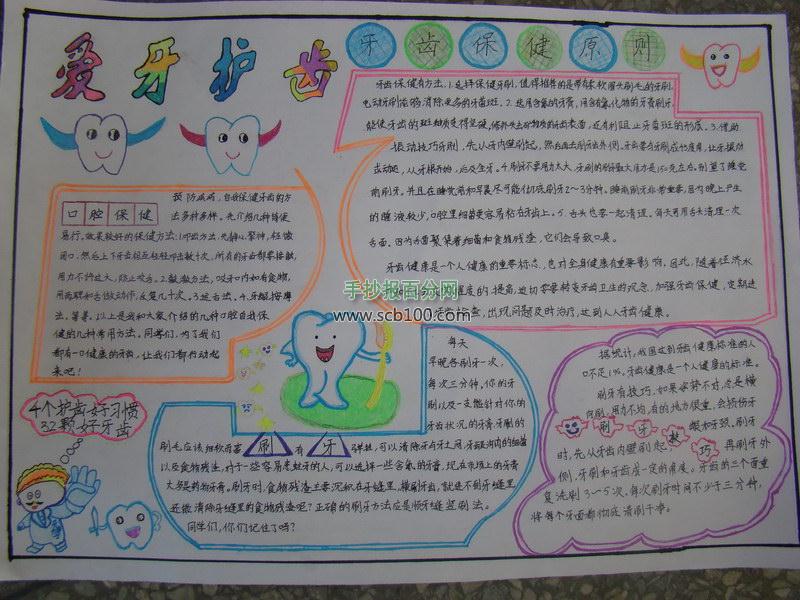 爱牙护齿
牙齿保健原则
牙齿保健有方法,1.选择保健牙刷,值得推荐的是带有柔软圆头刷毛的牙刷,
电动牙刷能够清除更多的牙菌斑。2.选用含氟的牙膏,用含有氟化物的牙膏刷牙,
能使牙齿的
还有利阻止牙菌斑的形成。3.借助
振动技巧牙刷,先从牙内壁刷起,然后再去刷牙齿外侧,
式动起,从牙根开始,后及全牙。4.刷牙不要用力太大,牙刷的刷牙最大用力是150克左右。别忘了睡觉
前刷牙。并且在睡觉前和早晨尽可能彻底刷牙2～3分钟。睡前刷牙非常重要,因为晚上产生
的唾液较少,口腔里细菌更容易粘在牙齿上。5.舌头也要一起清理。每天可用舌头清理一次
舌面。因为舌面聚集着细菌和食物残渣,它们会导致口臭。
牙齿健康是一个人健康的重要标志,也对全身健康有重要影响。因此,随着经济水
的提高,迫切需要转变牙齿卫生的观念,加强牙齿保健,定期进
出现问题及时治疗,达到人人牙齿健康。
口腔保健
预防疾病,自我保健牙齿的方
法多种多样。先介绍几种简便
易行、效果较好的保健方法:1.叩齿方法,
闭口,然后上下牙齿相互轻轻叩击数十次,所有的牙齿都要接触,
用力不可过大,防止咬舌。2.
反复几十次。3.运舌法。4.牙龈按摩
法。等等。以上是我和大家介绍的几种口腔自我保
健的几种常用方法。同学们,为了我们
都有一口健康的牙齿,让我们都行动起
来吧!
手抄报百分网
www.scb100.com
4个护齿好习惯
32颗好牙齿
每天
早晚各刷牙一次,
每次三分钟,你的牙
刷以及一支能针对你的
牙齿状况的牙膏。牙刷的
刷毛应该细软而富有弹性,可以清除牙齿牙之间、牙龈沟内的细菌
以及食物残渣,对于一些容易患蛀牙的人,可以选择一些含氟的牙膏,现在市场上的牙膏
大多是药物牙膏。刷牙时,食物残渣主要沉积在牙缝里,横刷牙齿,就进不到牙缝里
还做清除牙缝里的食物残渣呢?正确的刷牙方法应是顺牙缝竖刷法。
同学们,你们记住了吗?
刷牙
据统计,我国达到牙齿健康标准的人
口不足1%。牙齿健康是一个人健康的标准。
刷牙有技巧,如果姿势不对,总是横
向刷,用力不均,有的地方很重,会损伤牙
龈和牙颈,刷牙
时,先从牙齿内壁刷起,再刷牙外
侧,牙刷和牙齿成一定的角度。牙齿的三个面重
复洗刷3～5次。每次刷牙时间不少于三分钟,
将每个牙面都彻底清刷干净。
刷牙技巧